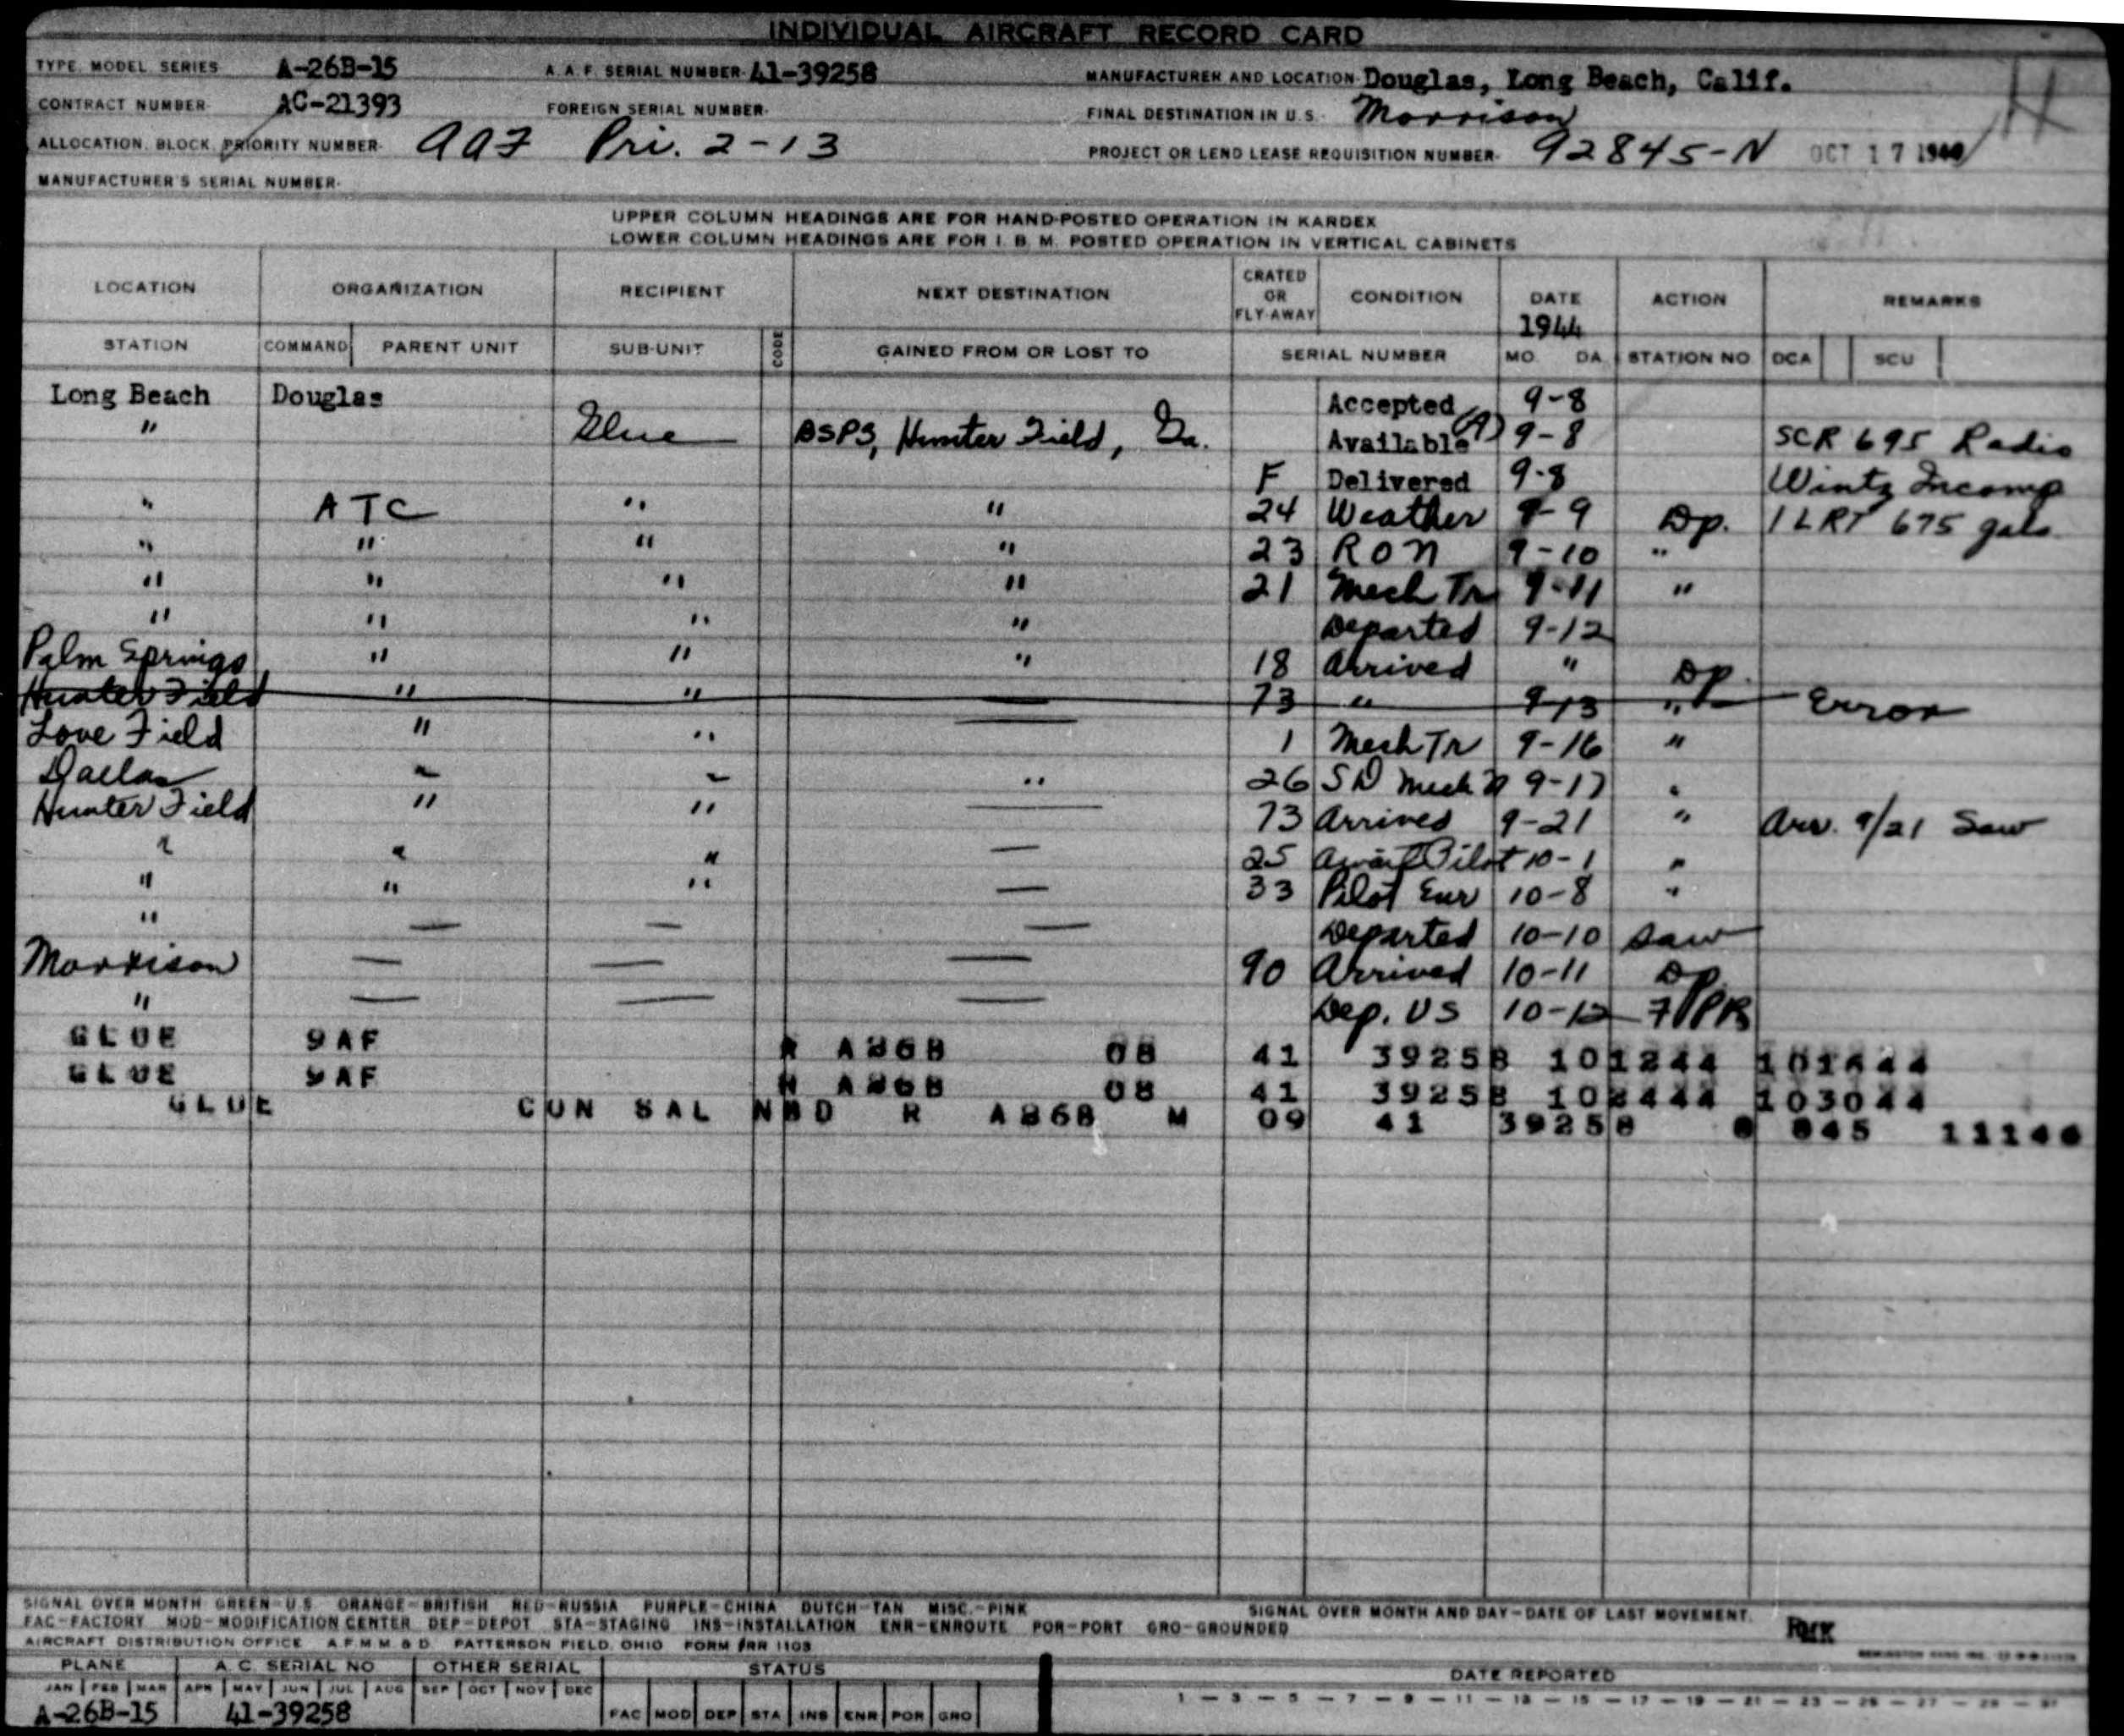 INDIVIDUAL AIRCRAFT RECORD CARD
TYPE, MODEL SERIES A-26B-15 A.A.F. SERIAL NUMBER- 41-39258 MANUFACTURER AND LOCATION- Douglas, Long Beach, Calif.
CONTRACT NUMBER- AC-21393 FOREIGN SERIAL NUMBER- FINAL DESTINATION IN U.S.- Morrison
ALLOCATION, BLOCK, PRIORITY NUMBER- AAF Pri. 2-13 PROJECT OR LEND LEASE REQUISITION NUMBER- 92845-N OCT 17
MANUFACTURER'S SERIAL NUMBER-
UPPER COLUMN HEADINGS ARE FOR HAND-POSTED OPERATION IN KARDEX
LOWER COLUMN HEADINGS ARE FOR I. B. M. POSTED OPERATION IN VERTICAL CABINETS
LOCATION ORGANIZATION RECIPIENT NEXT DESTINATION CRATED OR FLY-AWAY CONDITION DATE 1944 ACTION REMARKS
STATION COMMAND PARENT UNIT SUB-UNIT CODE GAINED FROM OR LOST TO SERIAL NUMBER MO. DA. STATION NO. DCA SCU
Long Beach Douglas Accepted 9-8
" Glue BSPS, Hunter Field, Ga. Available (A) 9-8 SCR 695 Radio
F Delivered 9-8 Wintz Incomp
" ATC " " 24 Weather 9-9 Dp. 1 LRT 675 gals.
" " " " 23 RON 9-10 "
" " " " 21 Mech Tr 9-11 "
" " " " Departed 9-12
Palm Springs " " " 18 Arrived " Dp.
Hunter Field " " — 73 " 9-13 " Error
Love Field " " — 1 Mech Tr 9-16 "
Dallas " " " 26 SD Mech Tr 9-17 "
Hunter Field " " — 73 Arrived 9-21 " Arr. 9/21 Saw
" " " — 25 Await Pilot 10-1 "
" " " — 33 Pilot Enr 10-8 "
" — — — Departed 10-10 Saw
Morrison — — — 90 Arrived 10-11 Dp
" — — — Dep. US 10-12
GLUE 9AF R A26B 08 41 39258 101244
GLUE 9AF A26B 08 41 39258 103044
GLUE CON SAL NBD R A26B M 09 41 39258 845
SIGNAL OVER MONTH GREEN-U.S. ORANGE-BRITISH RED-RUSSIA PURPLE-CHINA DUTCH-TAN MISC.-PINK SIGNAL OVER MONTH AND DAY-DATE OF LAST MOVEMENT.
FAC-FACTORY MOD-MODIFICATION CENTER DEP-DEPOT STA-STAGING INS-INSTALLATION ENR-ENROUTE POR-PORT GRO-GROUNDED
AIRCRAFT DISTRIBUTION OFFICE A.F.M.M. & D. PATTERSON FIELD, OHIO FORM 1103
PLANE A. C. SERIAL NO OTHER SERIAL STATUS DATE REPORTED
JAN FEB MAR APR MAY JUN JUL AUG SEP OCT NOV DEC 1 — 3 — 5 — 7 — 9 — 11 — 13 — 15 — 17 — 19 — 21 — 23 — 25 — 27 — 29 — 31
A-26B-15 41-39258 FAC MOD DEP STA INS ENR POR GRO